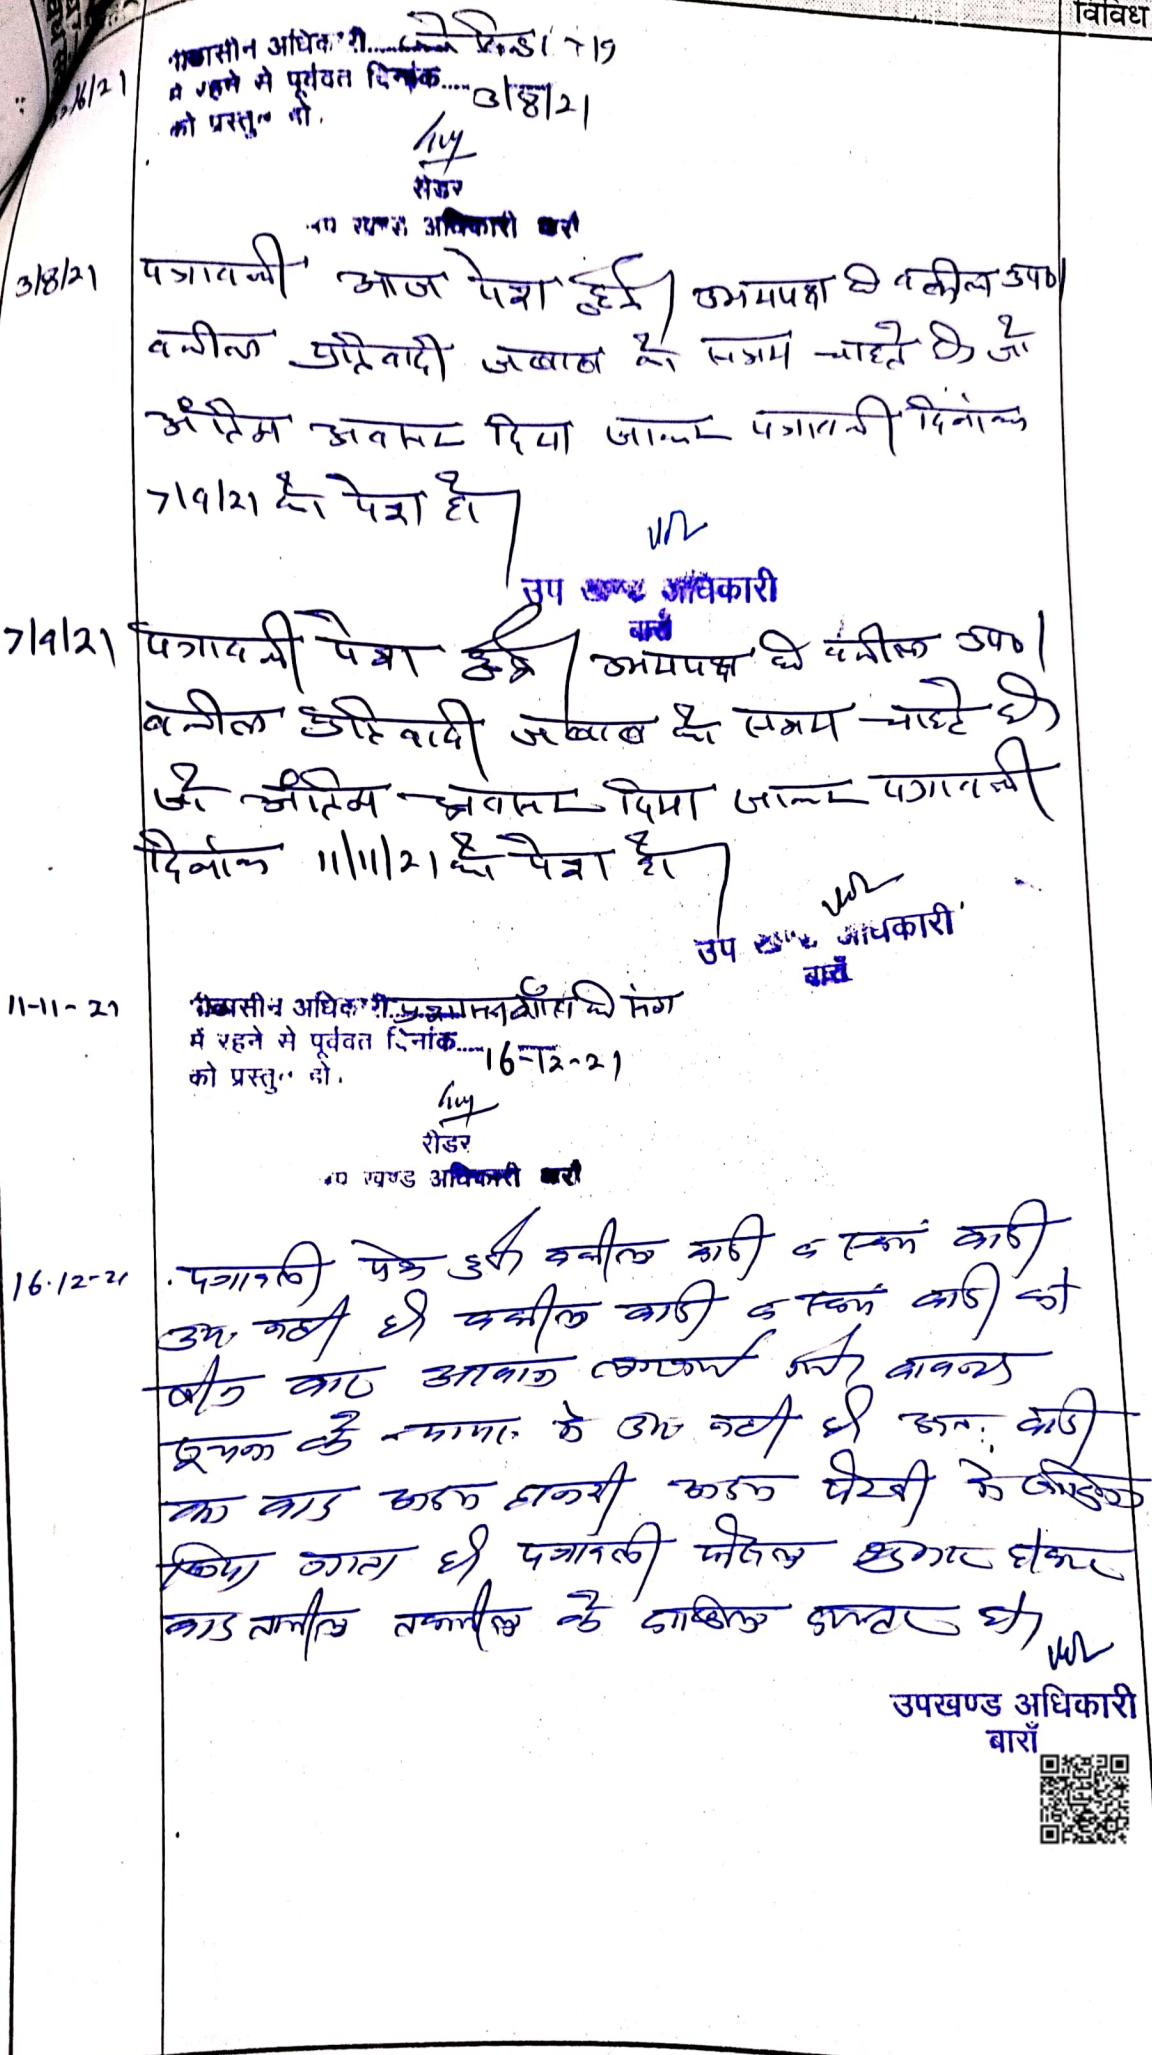 विविध
पीठासीन अधिकारी.....
/6/21
में रहने से पूर्ववत दिनांक..... 3/8/21
को प्रस्तुत हो.
रीडर
उप खण्ड अधिकारी बारां
3/8/21 पत्रावली आज पेश हुई। उभयपक्ष के वकील उप०।
वकील प्रतिवादी जवाब को समय चाहते है जो
अंतिम अवसर दिया जाकर पत्रावली दिनांक
7/9/21 को पेश हो।
उप खण्ड अधिकारी
बारां
7/9/21 पत्रावली पेश हुई। उभयपक्ष के वकील उप०।
वकील प्रतिवादी जवाब को समय चाहते है
जो अंतिम अवसर दिया जाकर पत्रावली
दिनांक 11/11/21 को पेश हो।
उप खण्ड अधिकारी
बाराँ
11-11-21 पीठासीन अधिकारी..... प्रशासन गाँवों के संग
में रहने से पूर्ववत दिनांक..... 16-12-21
को प्रस्तुत हो.
रीडर
उप खण्ड अधिकारी बारां
16-12-21 पत्रावली पेश हुई वकील वादी व स्वयं वादी
उप. नही है वकील वादी व स्वयं वादी को
बार आवाज लगवाई गई बावजूद
के उप नही है अतः वादी
का वाद अदम हाजरी अदम पैरवी मे खारिज
किया जाता है पत्रावली फैसल शुमार होकर
बाद तामील तकमील के दाखिल दफ्तर हो।
उपखण्ड अधिकारी
बाराँ